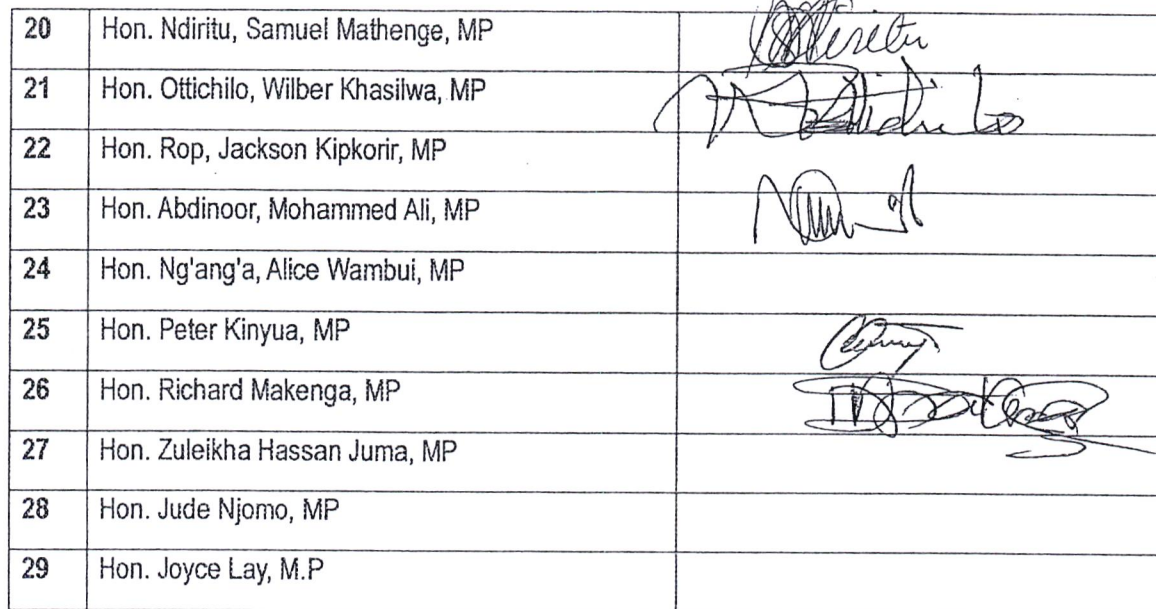 20 Hon. Ndiritu, Samuel Mathenge, MP
21 Hon. Ottichilo, Wilber Khasilwa, MP
22 Hon. Rop, Jackson Kipkorir, MP
23 Hon. Abdinoor, Mohammed Ali, MP
24 Hon. Ng'ang'a, Alice Wambui, MP
25 Hon. Peter Kinyua, MP
26 Hon. Richard Makenga, MP
27 Hon. Zuleikha Hassan Juma, MP
28 Hon. Jude Njomo, MP
29 Hon. Joyce Lay, M.P